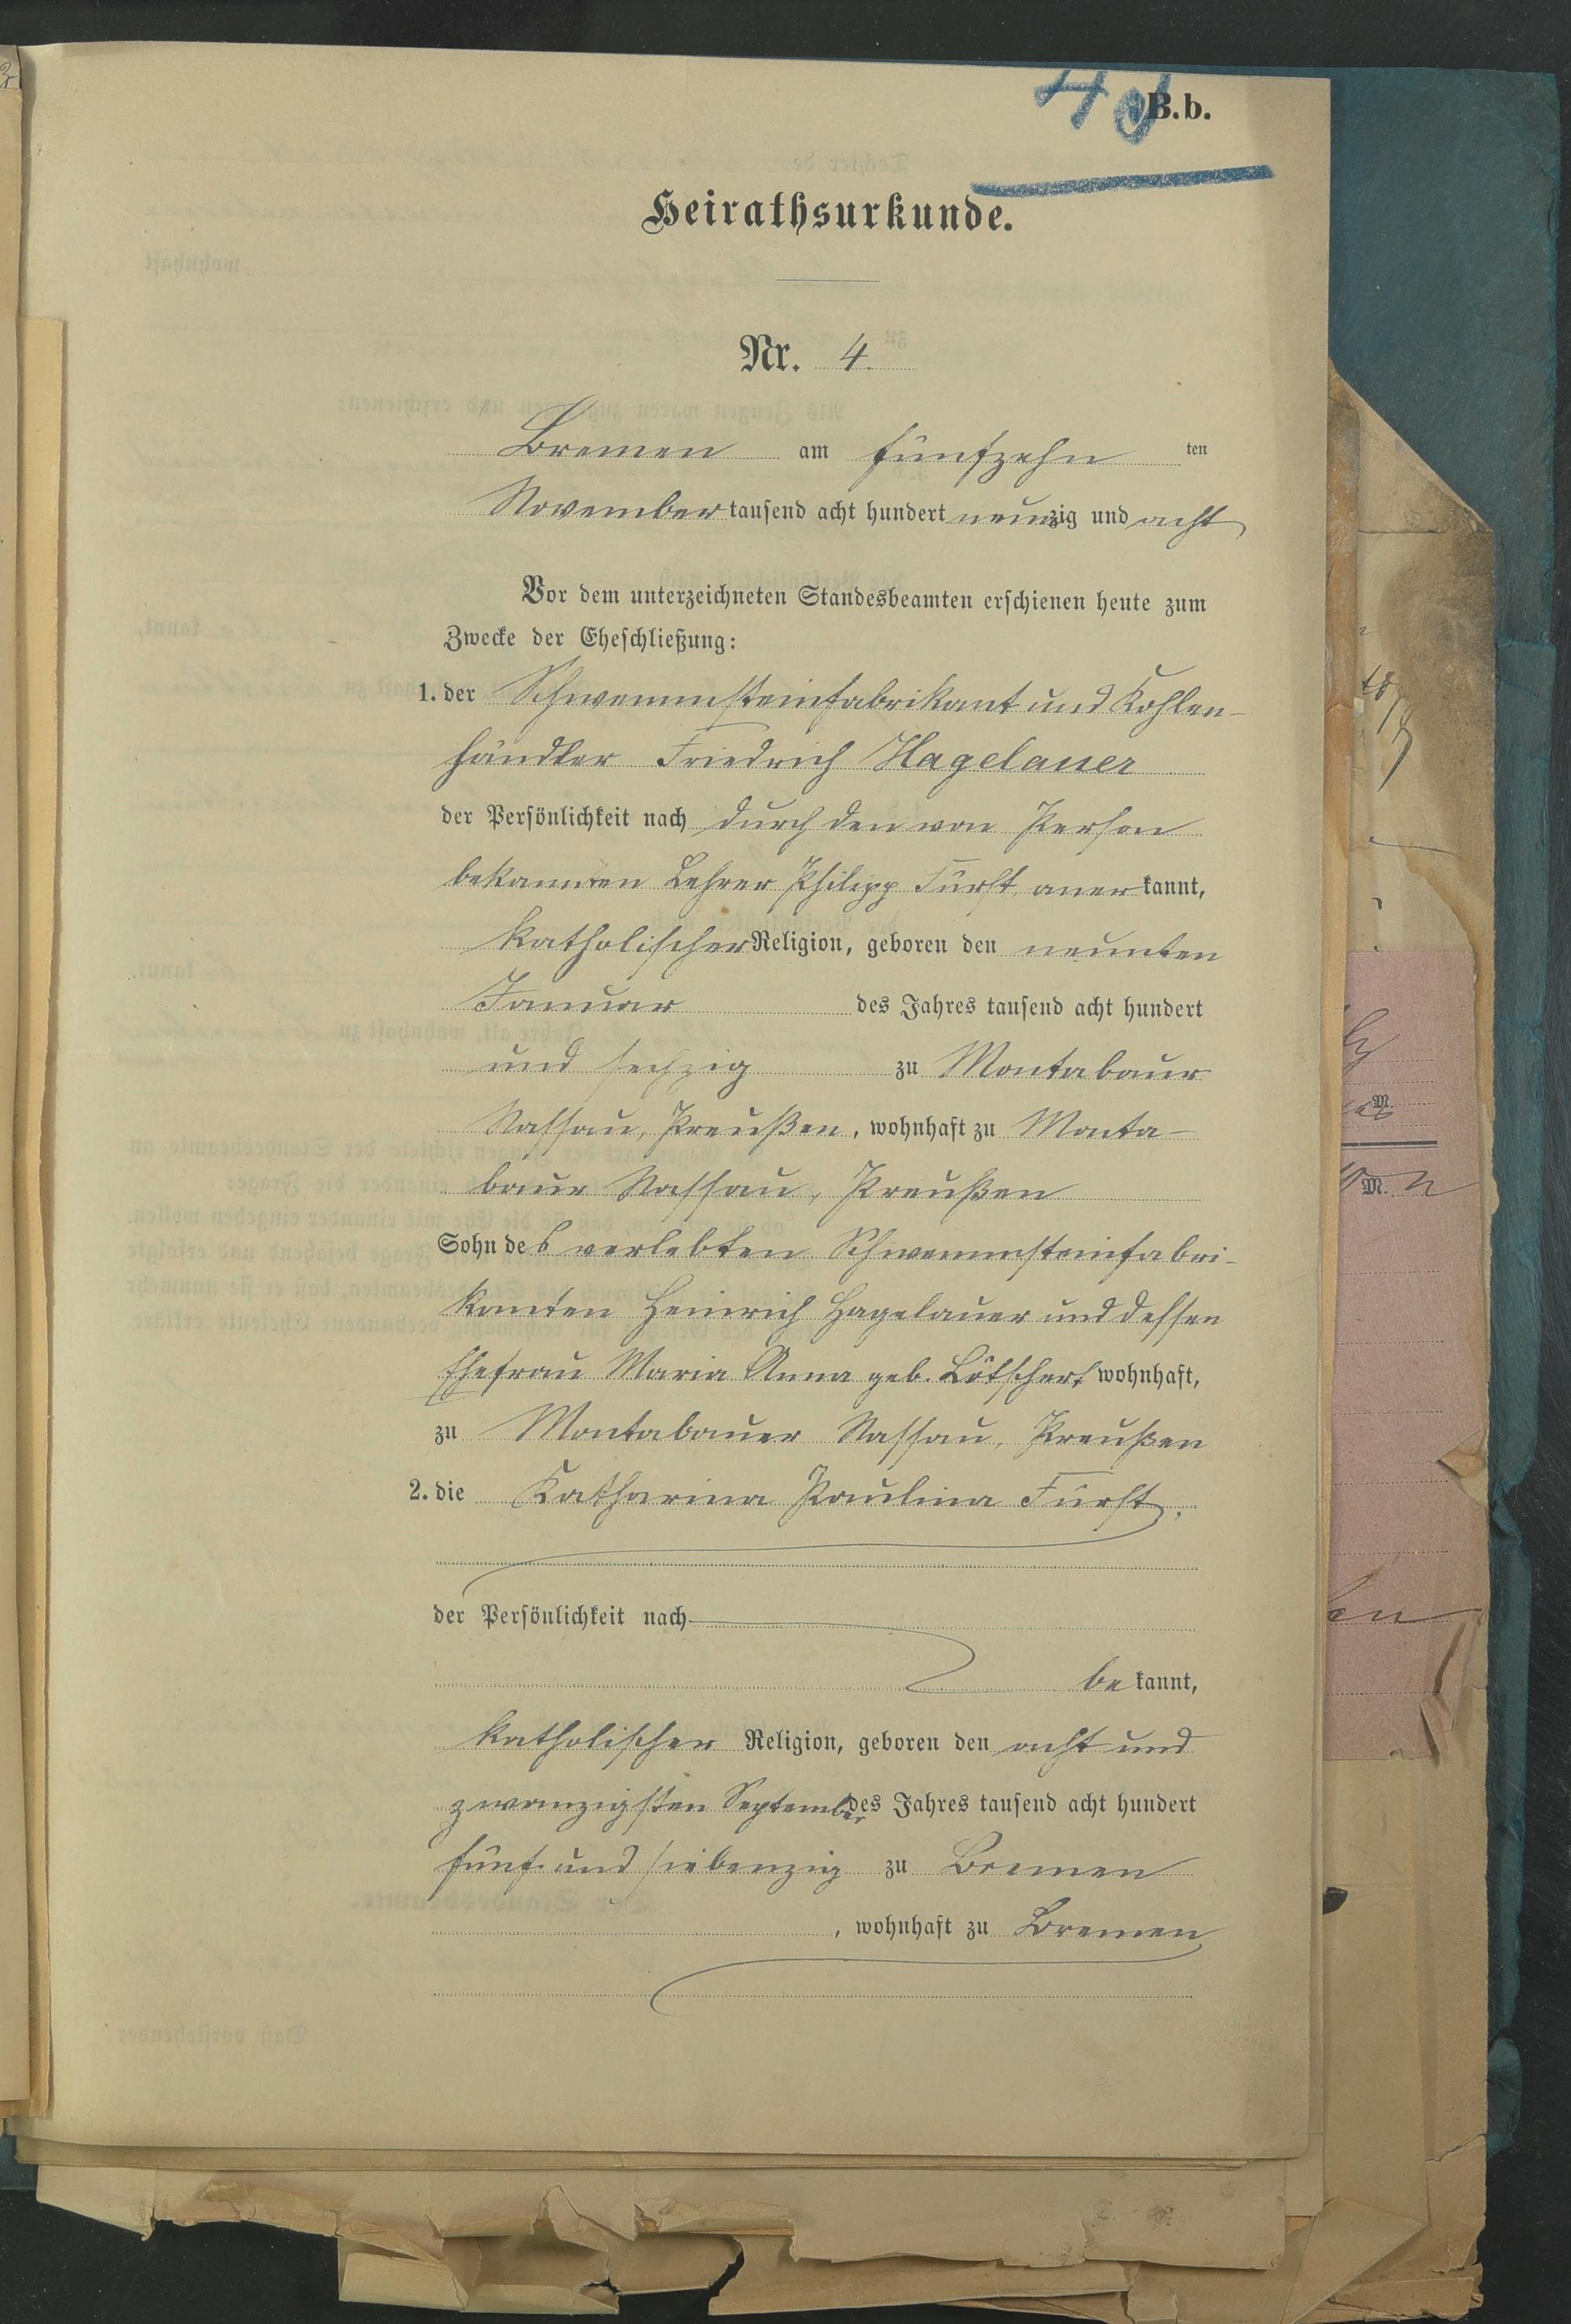 40
B.b.
Heirathsurkunde.
Nr. 4.
Bremen am fünfzehn ten
November tausend acht hundert neunzig und acht
Vor dem unterzeichneten Standesbeamten erschienen heute zum
Zwecke der Eheschließung:
1. der Schwemmsteinfabrikant und Kohlen-
händler Friedrich Hagelauer
der Persönlichkeit nach durch den von Person
bekannten Lehrer Philipp Fürst, anerkannt,
katholischer Religion, geboren den neunten
Januar des Jahres tausend acht hundert
und sechzig zu Montabaur
Nassau, Preußen, wohnhaft zu Monta-
baur Nassau, Preußen
Sohn des verlebten Schwemmsteinfabri-
kanten Heinrich Hagelauer und dessen
Ehefrau Maria Anna geb. Lötschert wohnhaft,
zu Montabauer Nassau, Preußen
2. die Katharina Paulina Fürst,
der Persönlichkeit nach
bekannt,
katholischer Religion, geboren den acht und
zwanzigsten September des Jahres tausend acht hundert
fünf und siebenzig zu Bremen
, wohnhaft zu Bremen